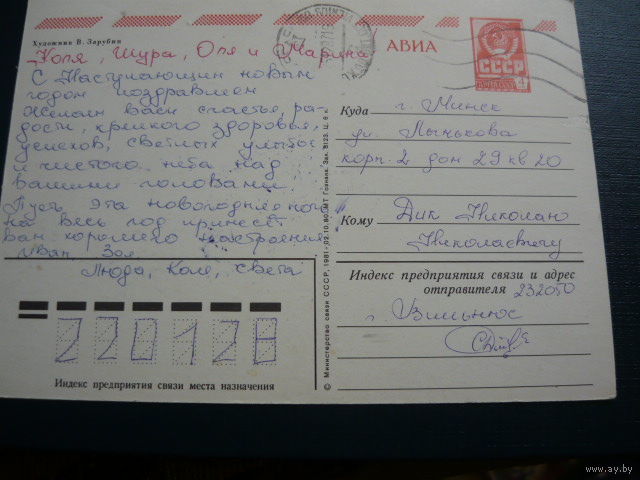 Художник В. Зарубин
Коля, Шура, Оля и Марина
С Наступающим новым
годом поздравляем
Желаем вам счастья, ра-
дости, крепкого здоровья,
успехов, светлых улыбок
и чистого неба над
вашими головами.
Пусть эта новогодняя ночь
на весь год принесёт
вам хорошего настроения
Люда, Коля, Света
АВИА
СССР
4
Куда г. Минск
ул.
корп. 2 дом 29 кв 20
Кому Дик Николаю
Николаевичу
Индекс предприятия связи и адрес
отправителя 232050
г Вильнюс
220128
Индекс предприятия связи места назначения
© Министерство связи СССР, 1981
www.ay.by